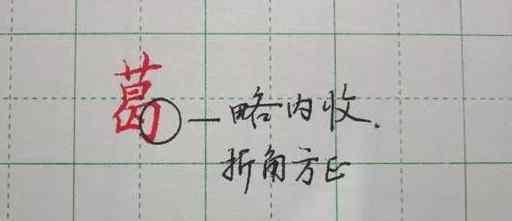 葛—略内收.
折角方正